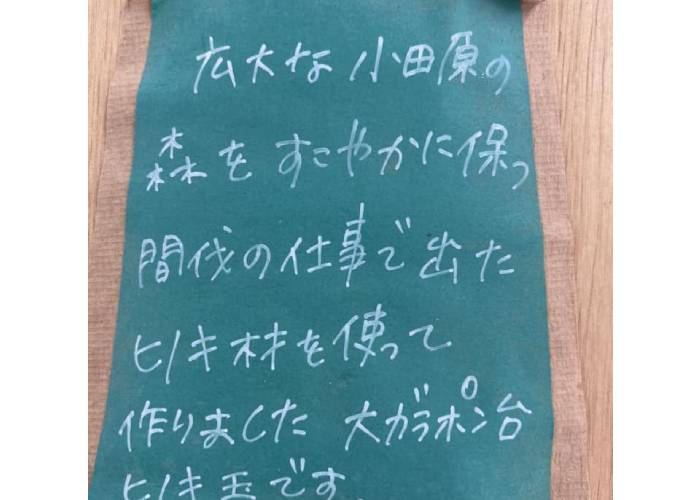 広大な 小田原の
森を すこやかに保つ
間伐の仕事で出た
ヒノキ材を使って
作りました 大ガラポン台
ヒノキ玉です。